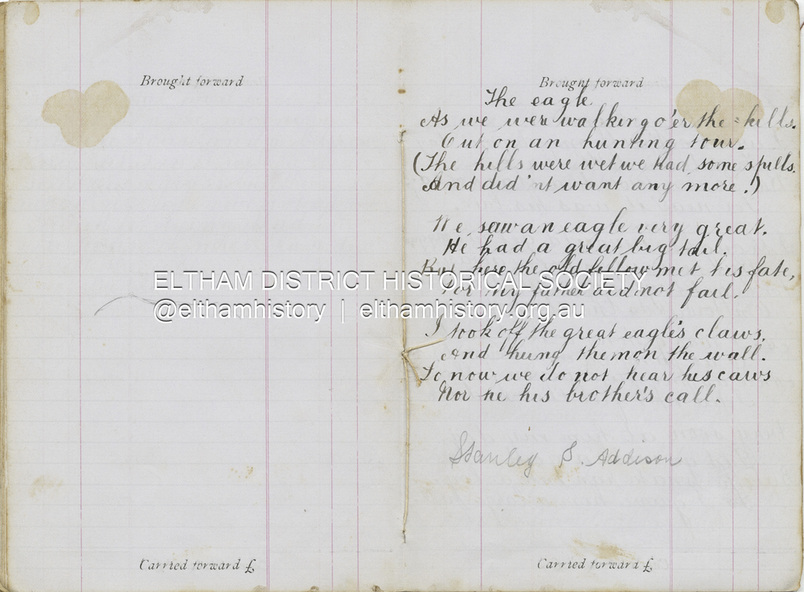 Brought forward
Brought forward
The eagle
As we were walking o'er the hills.
Out on an hunting tour.
(The hills were wet we had some spills.
And did'nt want any more.)
We saw an eagle very great.
He had a great big tail.
But here the old fellow met his fate,
For my father did not fail.
ELTHAM DISTRICT HISTORICAL SOCIETY
@elthamhistory | elthamhistory.org.au
I took off the great eagle's claws,
And hung them on the wall.
So now we do not hear his caws
Nor he his brother's call.
Stanley S. Addison
Carried forward £
Carried forward £